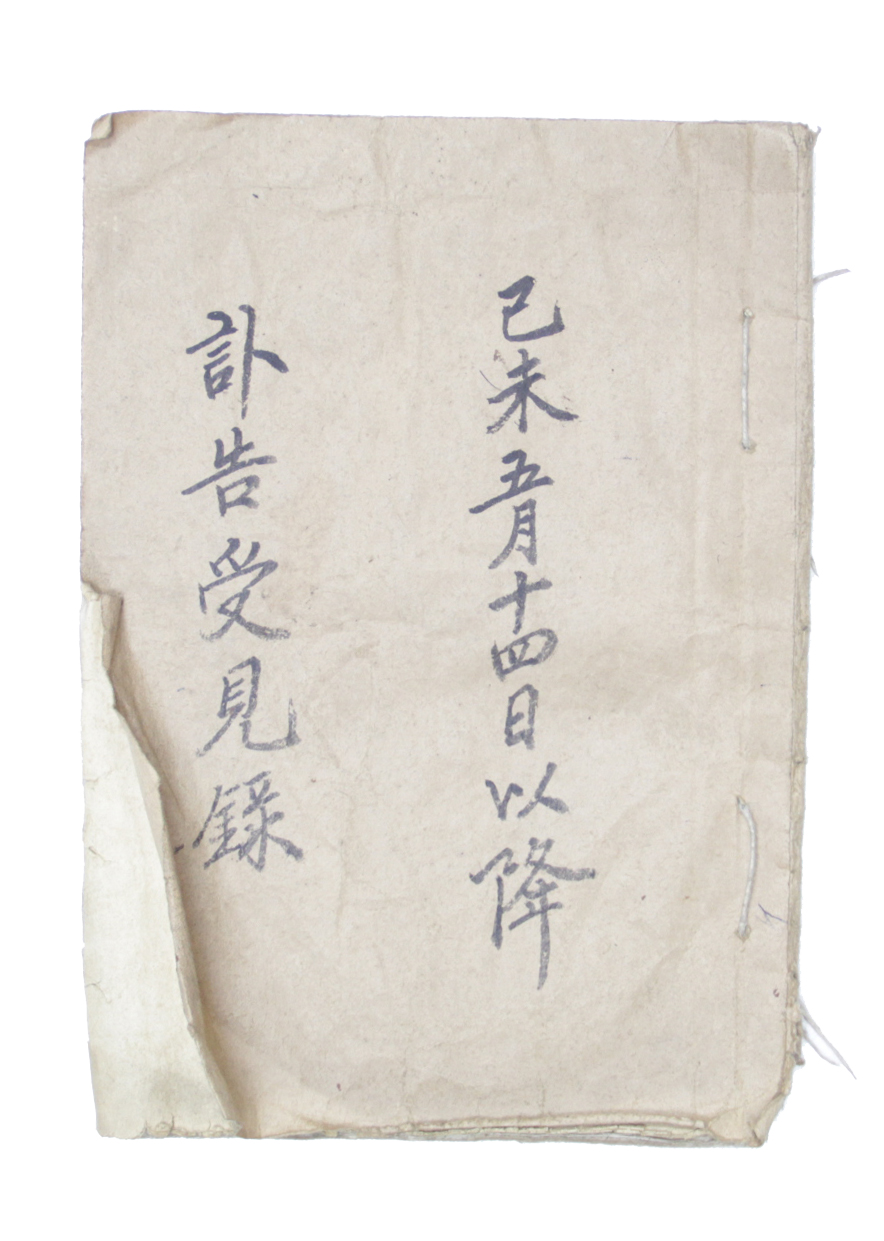 己未五月十四日以降
訃告受見錄